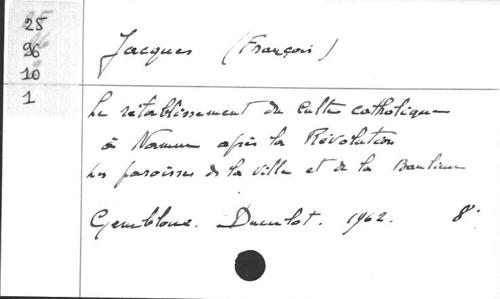 25
96
10
1
Jacques (François)
Le rétablissement du culte catholique
à Namur après la Révolution
Les paroisses de la ville et de la Banlieue
Gembloux. Duculot. 1962. 8°